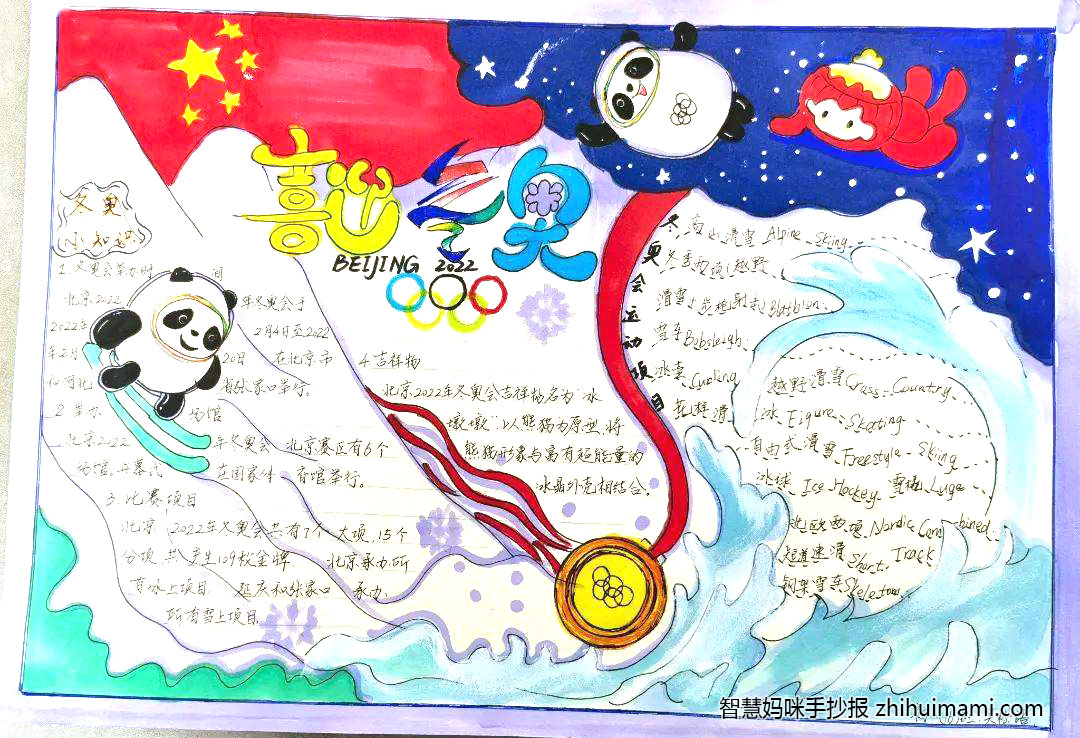 喜迎冬奥
BEIJING 2022
冬奥
小知识
1.冬奥会举办时间
北京2022年冬奥会于
2022年2月4日至2022
年2月20日在北京市
和河北省张家口举行。
2.举办场馆
北京2022年冬奥会北京赛区有6个
场馆,开幕式在国家体育馆举行。
3.比赛项目
北京2022年冬奥会共有7个大项,15个
分项,共产生109枚金牌。北京承办所
有冰上项目 延庆和张家口承办
所有雪上项目。
4.吉祥物
北京2022年冬奥会吉祥物名为"冰
墩墩",以熊猫为原型,将
熊猫形象与富有超能量的
冰晶外壳相结合。
冬奥会运动项目
高山滑雪 Alpine Skiing
冬季两项(越野
滑雪+步枪射击)Biathlon
雪车Bobsleigh
冰壶 Curling
越野滑雪Cross-Country
花样滑冰 Figure Skating
自由式滑雪 Freestyle-Skiing
冰球 Ice Hockey 雪橇 Luge
北欧两项 Nordic Combined
短道速滑 Short Track
钢架雪车Skeleton
智慧妈咪手抄报 zhihuimami.com